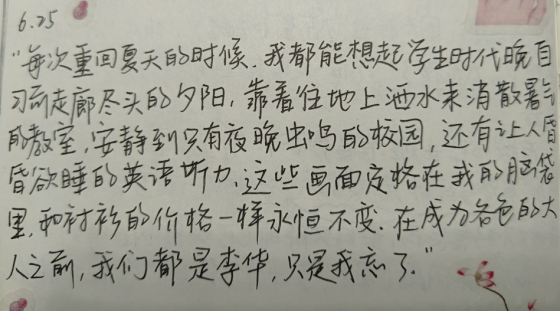 6.25
“每次重回夏天的时候，我都能想起学生时代晚自
习前走廊尽头的夕阳，靠着往地上洒水来消散暑气
的教室，安静到只有夜晚虫鸣的校园，还有让人昏
昏欲睡的英语听力，这些画面定格在我的脑袋
里，和衬衫的价格一样永恒不变．在成为各色的大
人之前，我们都是李华，只是我忘了．”